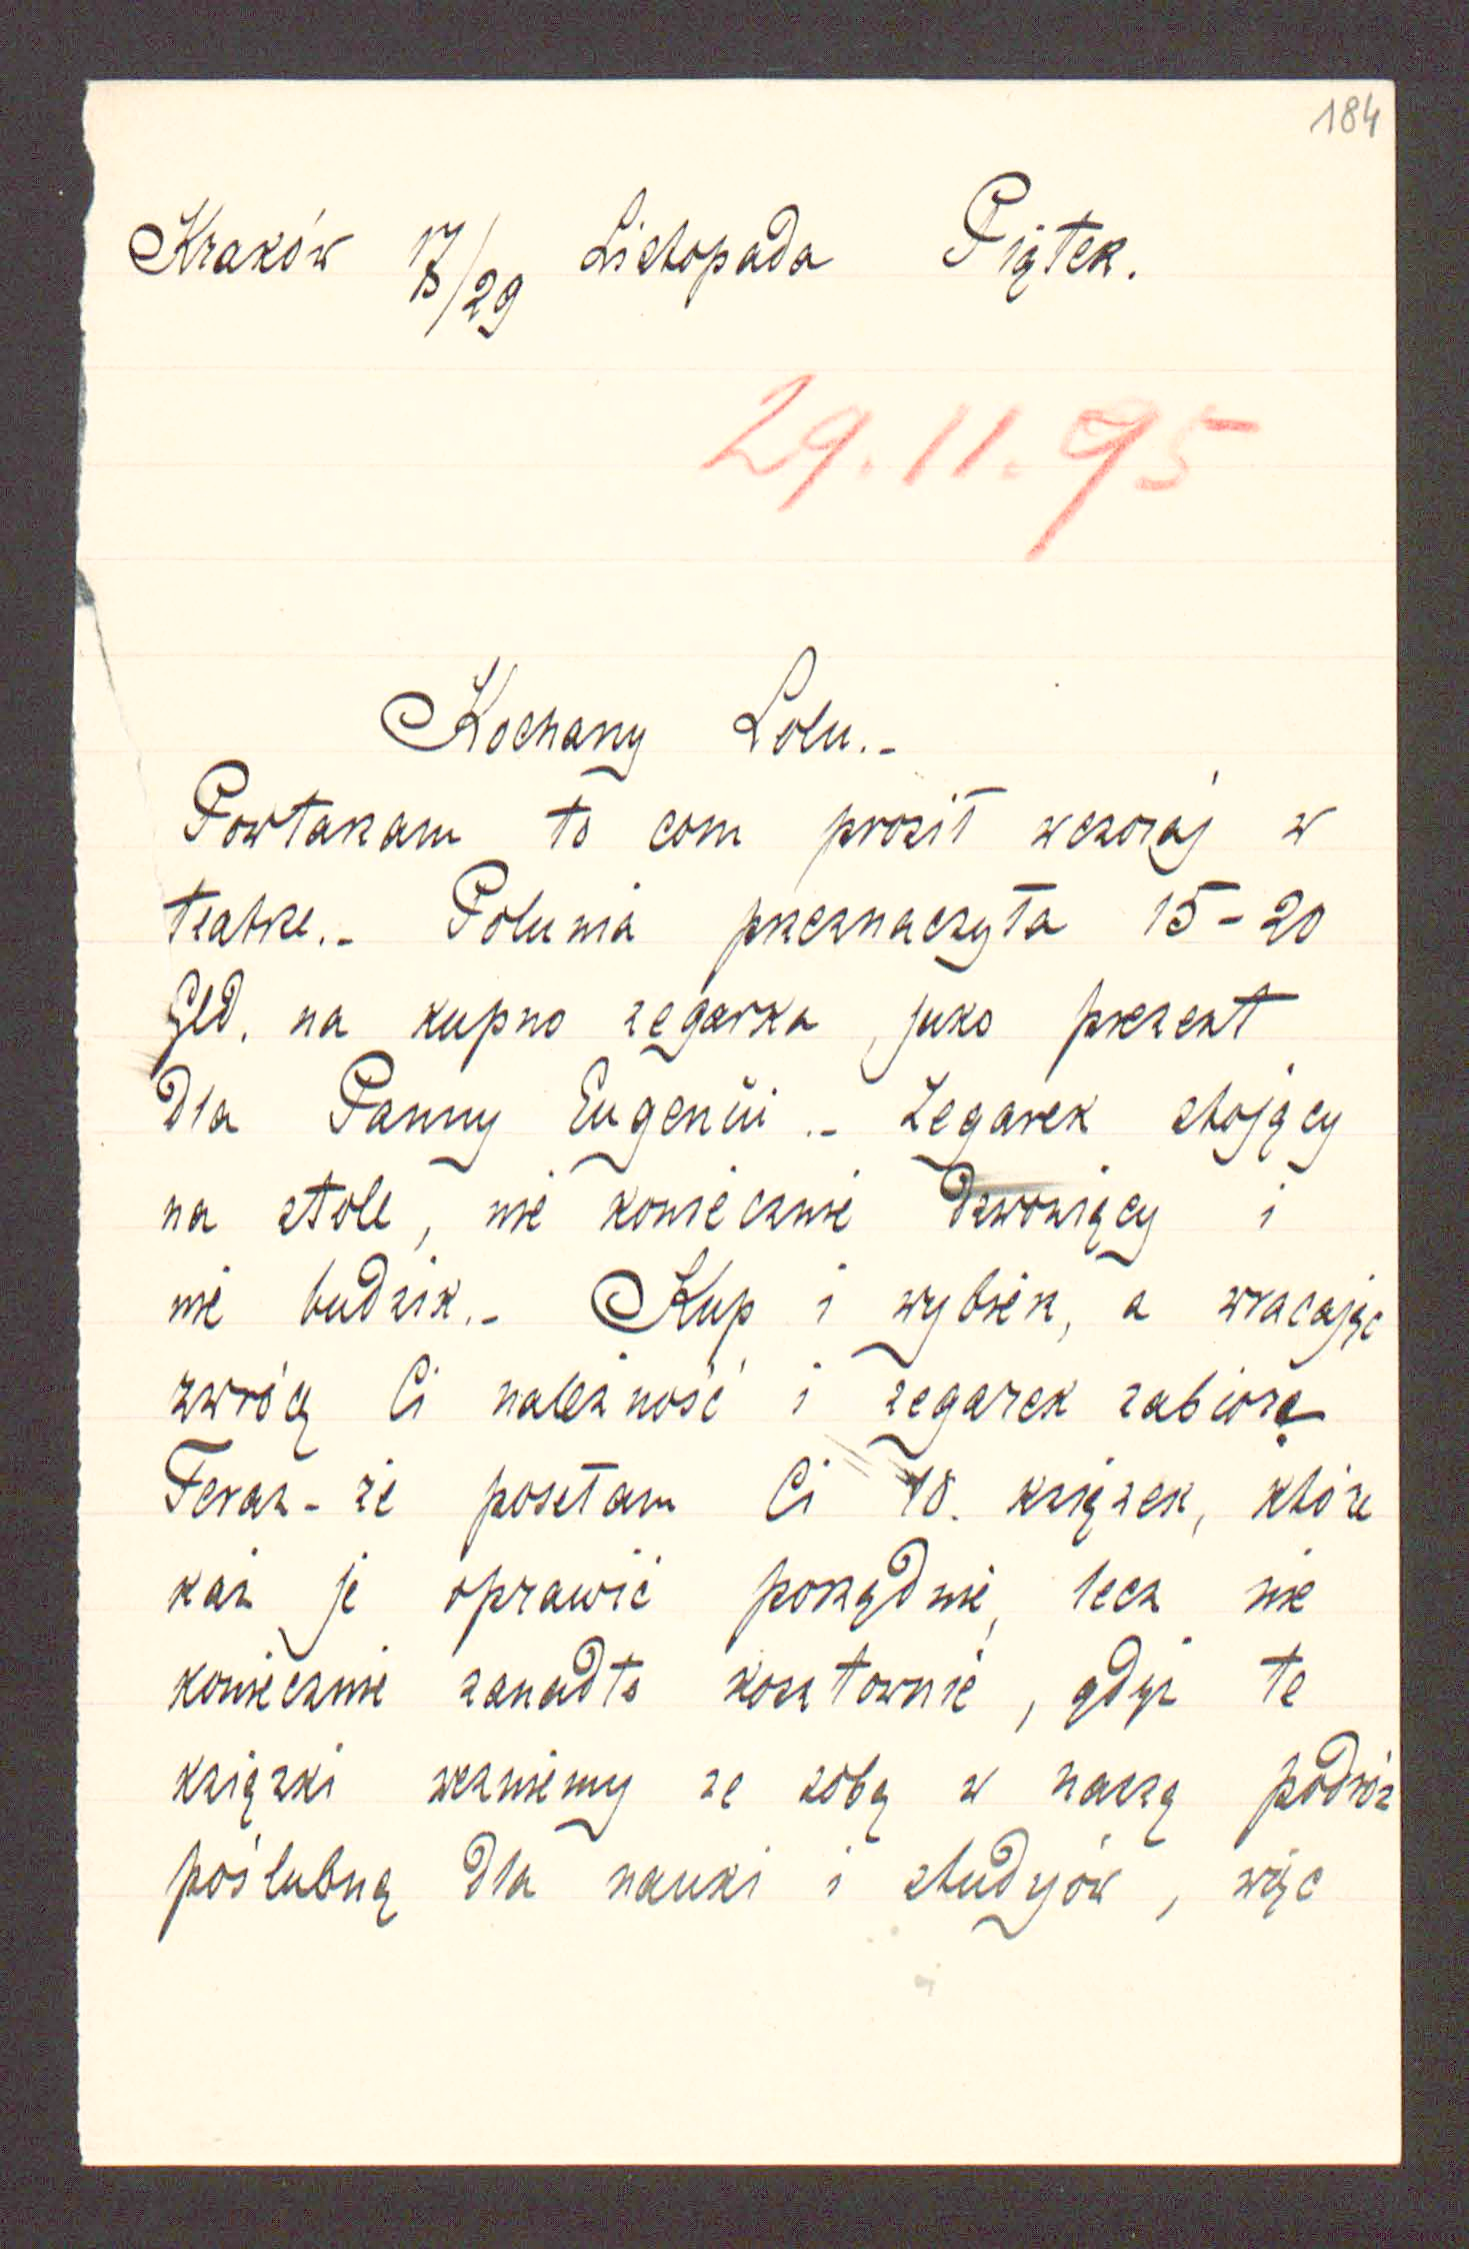 184
Kraków 17/29 Listopada Piątek.
29.11.95
Kochany Lolu.-
Powtarzam to com prosił wczoraj w
teatrze.- Polunia przeznaczyła 15-20
Gld. na kupno zegarka, jako prezent
dla Panny Eugenii.- Zegarek stojący
na stole, nie koniecznie dzwoniący i
nie budzik.- Kup i wybierz, a wracając
zwrócę Ci należność i zegarek zabiorę
Teraz-że posełam Ci 18. książek, które
każ je oprawić porządnie, lecz nie
koniecznie zanadto kosztownie, gdyż te
książki weźmiemy ze sobą w naszą podróż
poślubną dla nauki i studyów, więc